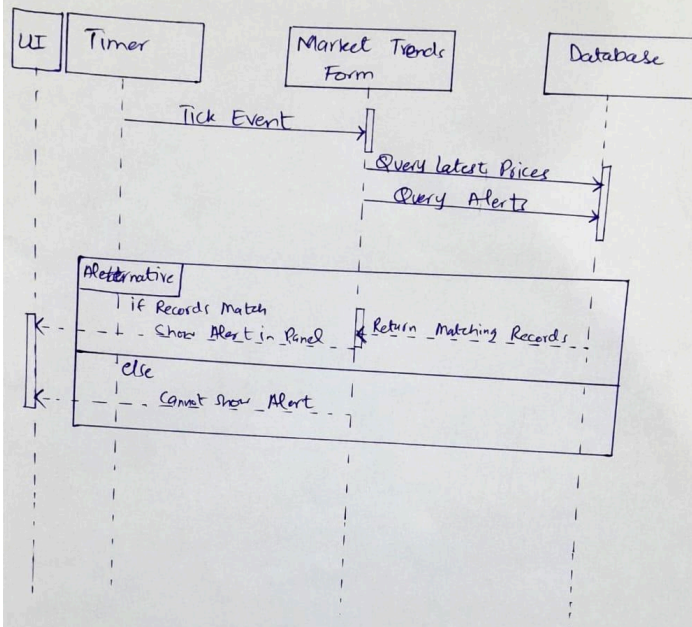 UI
Timer
Market Trends
Form
Database
Tick Event
Query Latest Prices
Query Alerts
Alternative
if Records Match
Show Alert in Panel
Return Matching Records
else
Cannot Show Alert